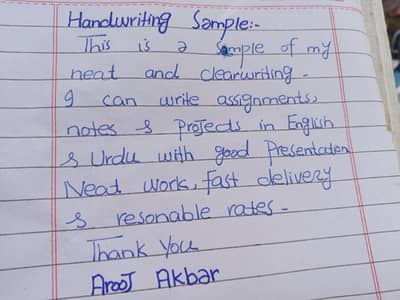 Handwriting Sample:-
This is a Sample of my
neat and clearwriting -
I can write assignments,
notes & Projects in English
& Urdu with good Presentation
Neat work, fast delivery
& resonable rates -
Thank You
Arooj Akbar